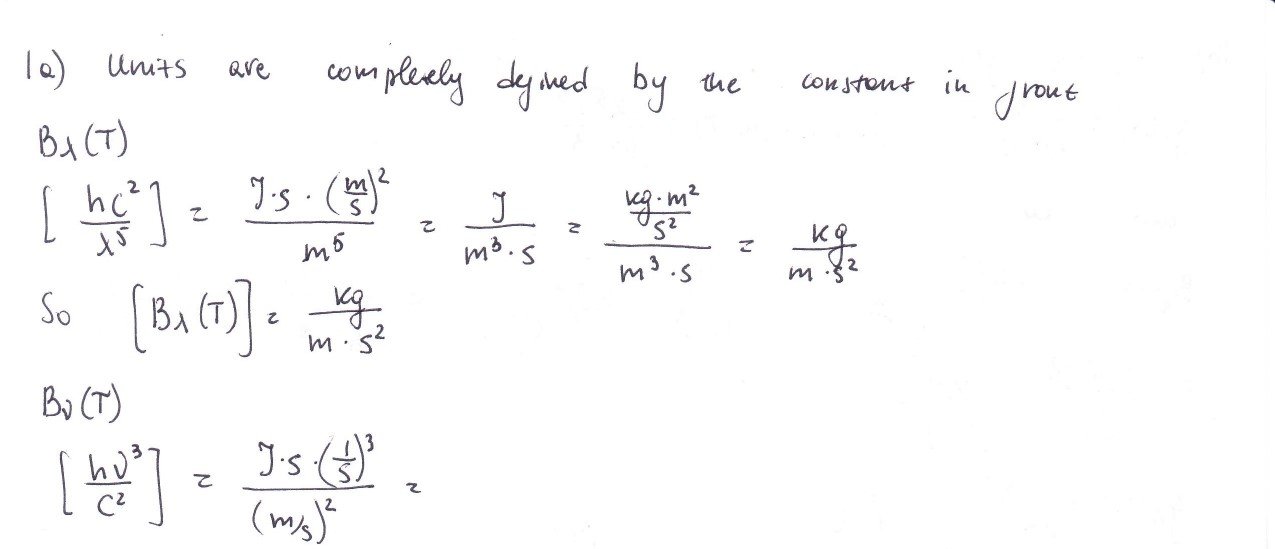 1a) Units are completely defined by the constant in front
Bλ(T)
[hc²/λ⁵] = J·s·(m/s)²/m⁵ = J/(m³·s) = (kg·m²/s²)/(m³·s) = kg/(m·s²)
So [Bλ(T)] = kg/(m·s²)
Bν(T)
[hν³/c²] = J·s·(1/s)³/(m/s)² =